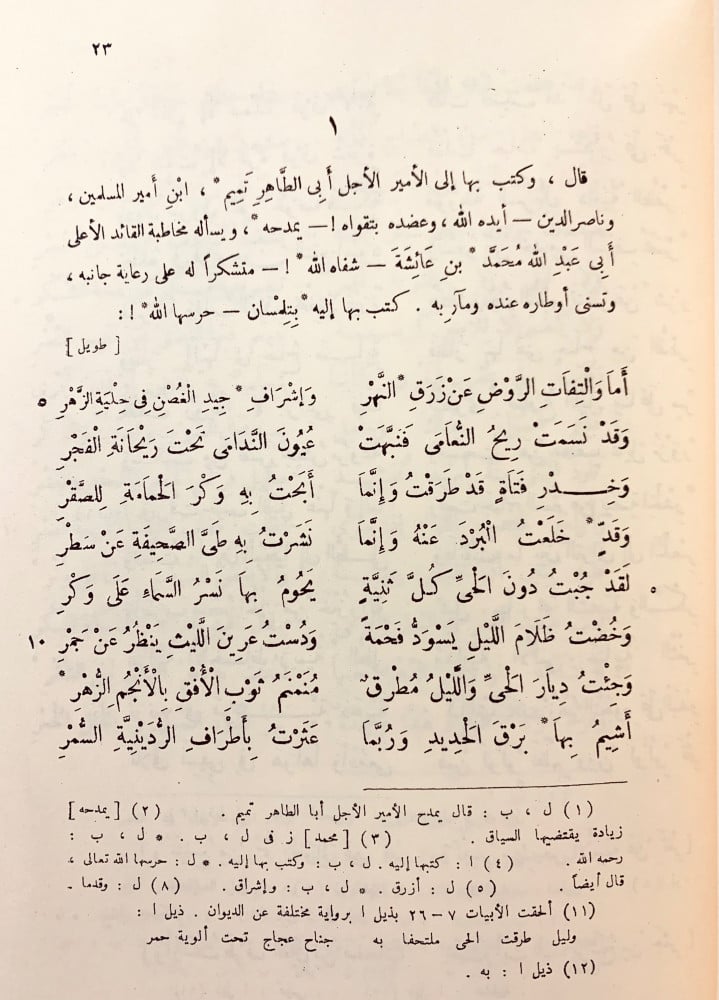 ٢٣
١
قال ، وكتب بها إلى الأمير الأجل أَبِى الطَّاهِرِ تَمِيمِ * ، ابْنِ أمير المسلمين ،
وناصر الدين — أيده الله ، وعضده بتقواه ! — يمدحه * ، ويسأله مخاطبة القائد الأعلى
أَبِى عَبْدِ اللهِ مُحَمَّدِ * بنِ عَائِشَةَ — شفاه الله * ! — متشكراً له على رعاية جانبه ،
وتسنى أوطاره عنده ومآربه . كتب بها إليه * بِتِلِمْسَان — حرسها الله * ! :
[ طويل ]
أَمَا وَالْتِفَاتِ الرَّوْضِ عَنْ زَرَقِ * النَّهْرِ وَإِشْرَافِ * جِيدِ الْغُصْنِ فِى حِلْيَةِ الزَّهْرِ ٥
وَقَدْ نَسَمَتْ رِيحُ النُّعَامَى فَنَبَّهَتْ عُيُونَ النَّدَامَى تَحْتَ رَيْحَانَةِ الْفَجْرِ
وَخِدْرِ فَتَاةٍ قَدْ طَرَقْتُ وَإِنَّمَا أَبَحْتُ بِهِ وَكْرَ الْحَمَامَةِ لِلصَّقْرِ
وَقَدٍّ * خَلَعْتُ الْبُرْدَ عَنْهُ وَإِنَّمَا نَشَرْتُ بِهِ طَىَّ الصَّحِيفَةِ عَنْ سَطْرِ
٥ لَقَدْ جُبْتُ دُونَ الْحَىِّ كُلَّ ثَنِيَّةٍ يَحُومُ بِهَا نَسْرُ السَّمَاءِ عَلَى وَكْرِ
وَخُضْتُ ظَلَامَ اللَّيْلِ يَسْوَدُّ فَحْمَةً وَدُسْتُ عَرِينَ اللَّيْثِ يَنْظُرُ عَنْ جَمْرِ ١٠
وَجِئْتُ دِيَارَ الْحَىِّ وَاللَّيْلُ مُطْرِقٌ مُنَمْنَمُ ثَوْبِ الْأُفْقِ بِالْأَنْجُمِ الزُّهْرِ *
أَشِيمُ بِهَا * بَرْقَ الْحَدِيدِ وَرُبَّمَا عَثَرْتُ بِأَطْرَافِ الرُّدَيْنِيَّةِ السُّمْرِ
(١) ل ، ب : قال يمدح الأمير الأجل أبا الطاهر تميم . (٢) [يمدحه]
زيادة يقتضيها السياق . (٣) [محمد] ز فى ل ، ب . * ل ، ب :
رحمه الله . (٤) ا : كتبها إليه . ل ، ب : وكتب بها إليه . * ل : حرسها الله تعالى ،
قال أيضاً . (٥) ل : أزرق . * ل ، ب : وإشراق . (٨) ل : وقدما .
(١١) ألحقت الأبيات ٧ – ٢٦ بذيل ا برواية مختلفة عن الديوان . ذيل ا :
وليل طرقت الحى ملتحفا به جناح عجاج تحت ألوية حمر
(١٢) ذيل ا : به .